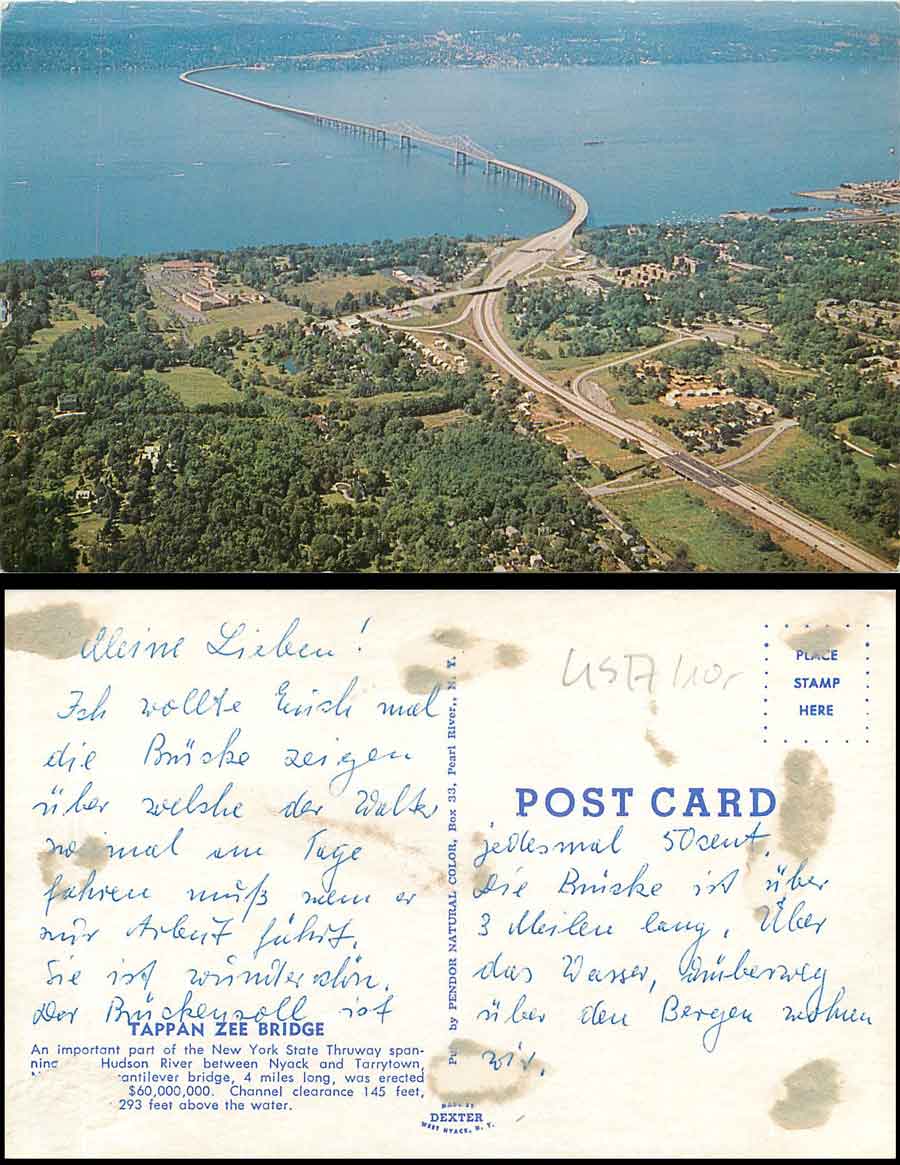 Meine Lieben!
Ich wollte Euch mal
die Brücke zeigen
über welche der Walter
mal am Tage
fahren muß wenn er
zur Arbeit fährt.
Sie ist wunderschön.
Der Brückenzoll ist
TAPPAN ZEE BRIDGE
An important part of the New York State Thruway span-
Hudson River between Nyack and Tarrytown,
cantilever bridge, 4 miles long, was erected
$60,000,000. Channel clearance 145 feet,
293 feet above the water.
by PENDOR NATURAL COLOR, Box 33, Pearl River,, N. Y.
MADE BY
DEXTER
WEST NYACK, N. Y.
USA/10,-
PLACE
STAMP
HERE
POST CARD
jedesmal 50 cent.
Die Brücke ist über
3 Meilen lang. Über
das Wasser, drüberweg
über den Bergen wohnen
wir.